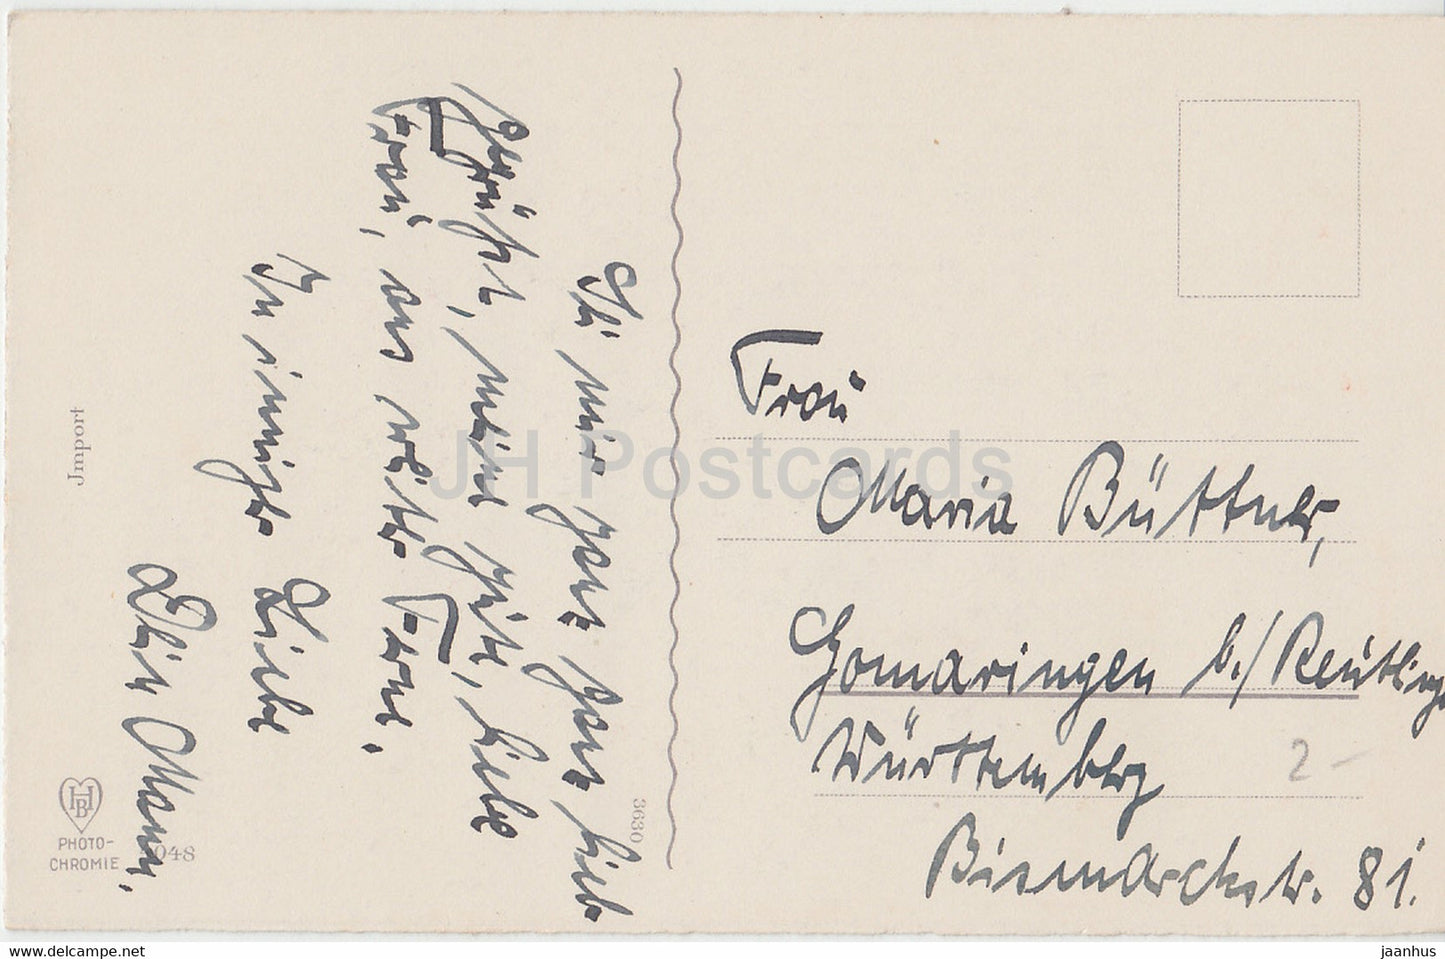 Sei mir ganz ganz lieb
gegrüßt, meine gute, liebe
Frau, aus weiter Ferne.
In inniger Liebe
Dein Mann.
Frau
Maria Büttner,
Gomaringen b./Reutlingen
Württemberg
Bismarckstr. 81.
2-
3630
Jmport
HB
PHOTO-
CHROMIE
048
JH Postcards
www.delcampe.net
jaanhus